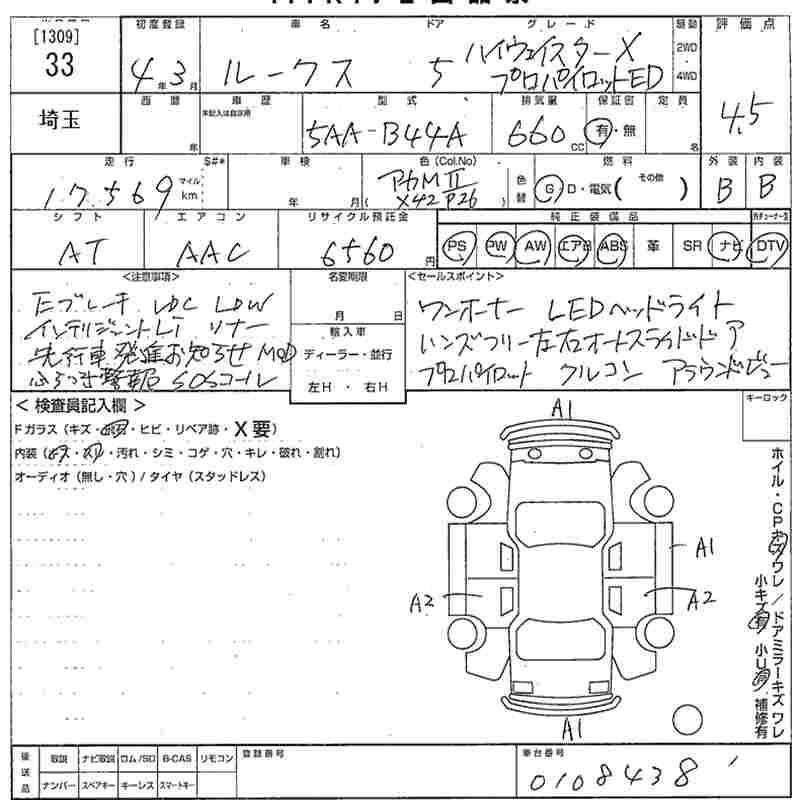 [1309]
33
埼玉
初度登録
4年3月
車名
ルークス
ドア
5
グレード
ハイウェイスターX
プロパイロットED
駆動
2WD
4WD
評価点
4.5
西暦
年
車歴
未記入は自家用
型式
5AA-B44A
排気量
660cc
保証書
有・無
定員
名
走行
17,569
マイル
km
S#*
車検
年 月
色(Col.No)
アカMII
(X42 P26)
色替
燃料
G D・電気( その他 )
外装
B
内装
B
シフト
AT
エアコン
AAC
リサイクル預託金
6560円
純正装備品
PS PW AW エアB ABS 革 SR ナビ DTV
<注意事項>
Eブレーキ LDC LDW
インテリジェントLI ソナー
先行車発進お知らせ MOD
ふらつき警報 SOSコール
名変期限
月 日
輸入車
ディーラー・並行
左H・右H
<セールスポイント>
ワンオーナー LEDヘッドライト
ハンズフリー左右オートスライドドア
プロパイロット クルコン アラウンドビュー
<検査員記入欄>
Fガラス(キズ・・ヒビ・リペア跡・X要)
内装(キズ・・汚れ・シミ・コゲ・穴・キレ・破れ・割れ)
オーディオ(無し・穴)/タイヤ(スタッドレス)
キーロック
A1
A1
A2
A2
A1
ホイル・CPキズワレ/ドアミラーキズワレ
小キズ有 小U有 補修有
後送品
取説 ナビ取説 ロム/SD B-CAS リモコン
ナンバー スペアキー キーレス スマートキー
登録番号
車台番号
0108438